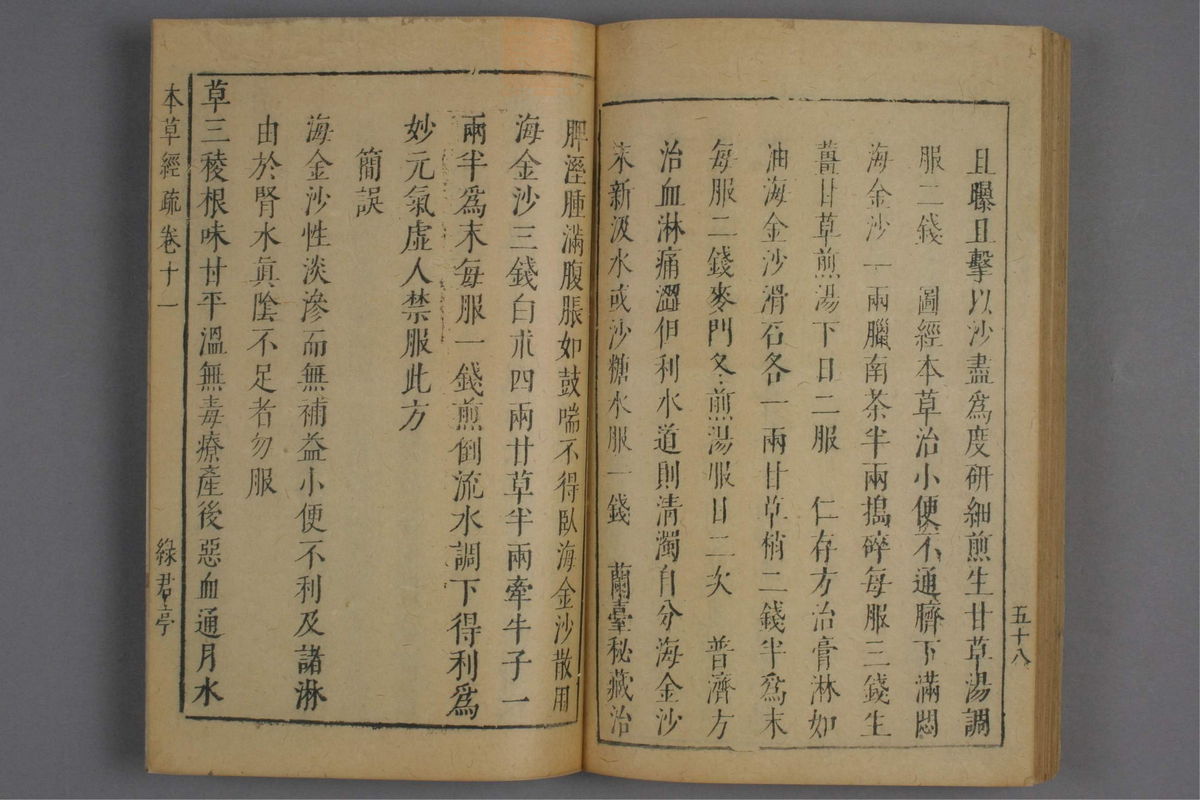 五十八
且曝且擊以沙盡為度研細煎生甘草湯調
服二錢　圖經本草治小便不通臍下滿悶
海金沙一兩臘南茶半兩搗碎每服三錢生
薑甘草煎湯下日二服　仁存方治膏淋如
油海金沙滑石各一兩甘草梢二錢半爲末
每服二錢麥門冬煎湯服日二次　普濟方
治血淋痛澀但利水道則清濁自分海金沙
末新汲水或沙糖水服一錢　蘭臺秘藏治
脾溼腫滿腹脹如鼓喘不得臥海金沙散用
海金沙三錢白朮四兩甘草半兩牽牛子一
兩半爲末每服一錢煎倒流水調下得利爲
妙元氣虛人禁服此方
簡誤
海金沙性淡滲而無補益小便不利及諸淋
由於腎水眞陰不足者勿服
草三稜根味甘平溫無毒療產後惡血通月水
本草經疏卷十一
綠君亭